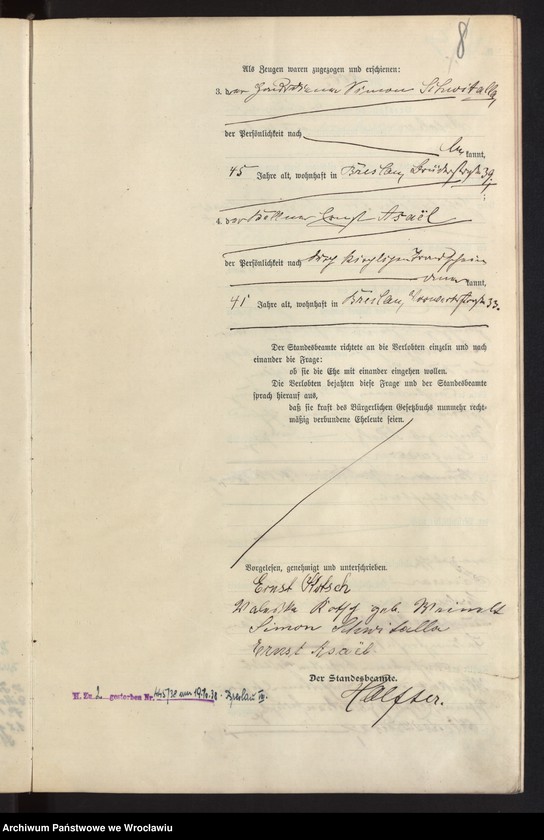 8
Als Zeugen waren zugezogen und erschienen:
3. der Haushälter Simon Schwitalla
der Persönlichkeit nach
kannt,
45 Jahre alt, wohnhaft in Breslau, Brüderstraße 39
4. der Kellner Ernst Asaël
der Persönlichkeit nach durch
kannt,
41 Jahre alt, wohnhaft in Breslau, 33.
Der Standesbeamte richtete an die Verlobten einzeln und nach
einander die Frage:
ob sie die Ehe mit einander eingehen wollen.
Die Verlobten bejahten diese Frage und der Standesbeamte
sprach hierauf aus,
daß sie kraft des Bürgerlichen Gesetzbuchs nunmehr recht-
mäßig verbundene Eheleute seien.
Vorgelesen, genehmigt und unterschrieben.
Ernst
geb.
Simon Schwitalla
Ernst Asaël
Der Standesbeamte.
gestorben Nr. am 19.10.38. Breslau III.
Archiwum Państwowe we Wrocławiu